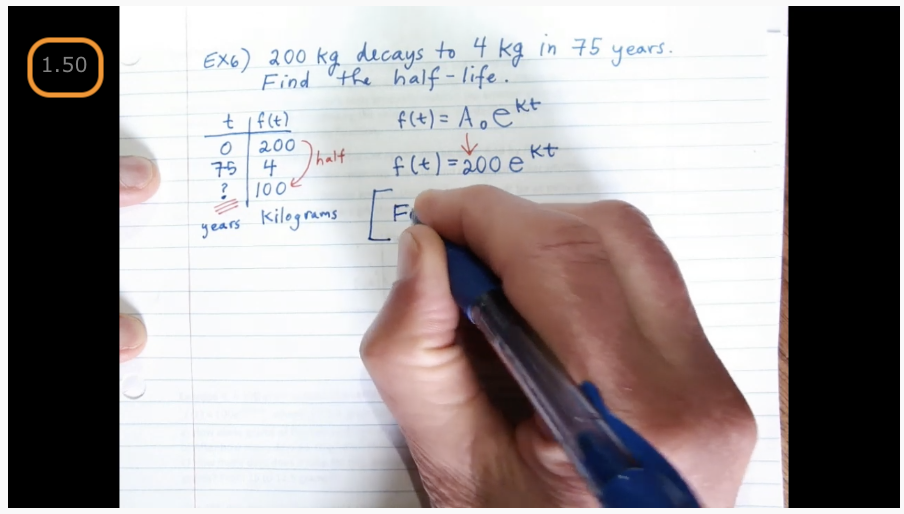 1.50
EX6) 200 kg decays to 4 kg in 75 years.
Find the half-life.
t f(t)
0 200
75 4
? 100
years Kilograms
half
f(t) = A₀ e^kt
f(t) = 200 e^kt
[